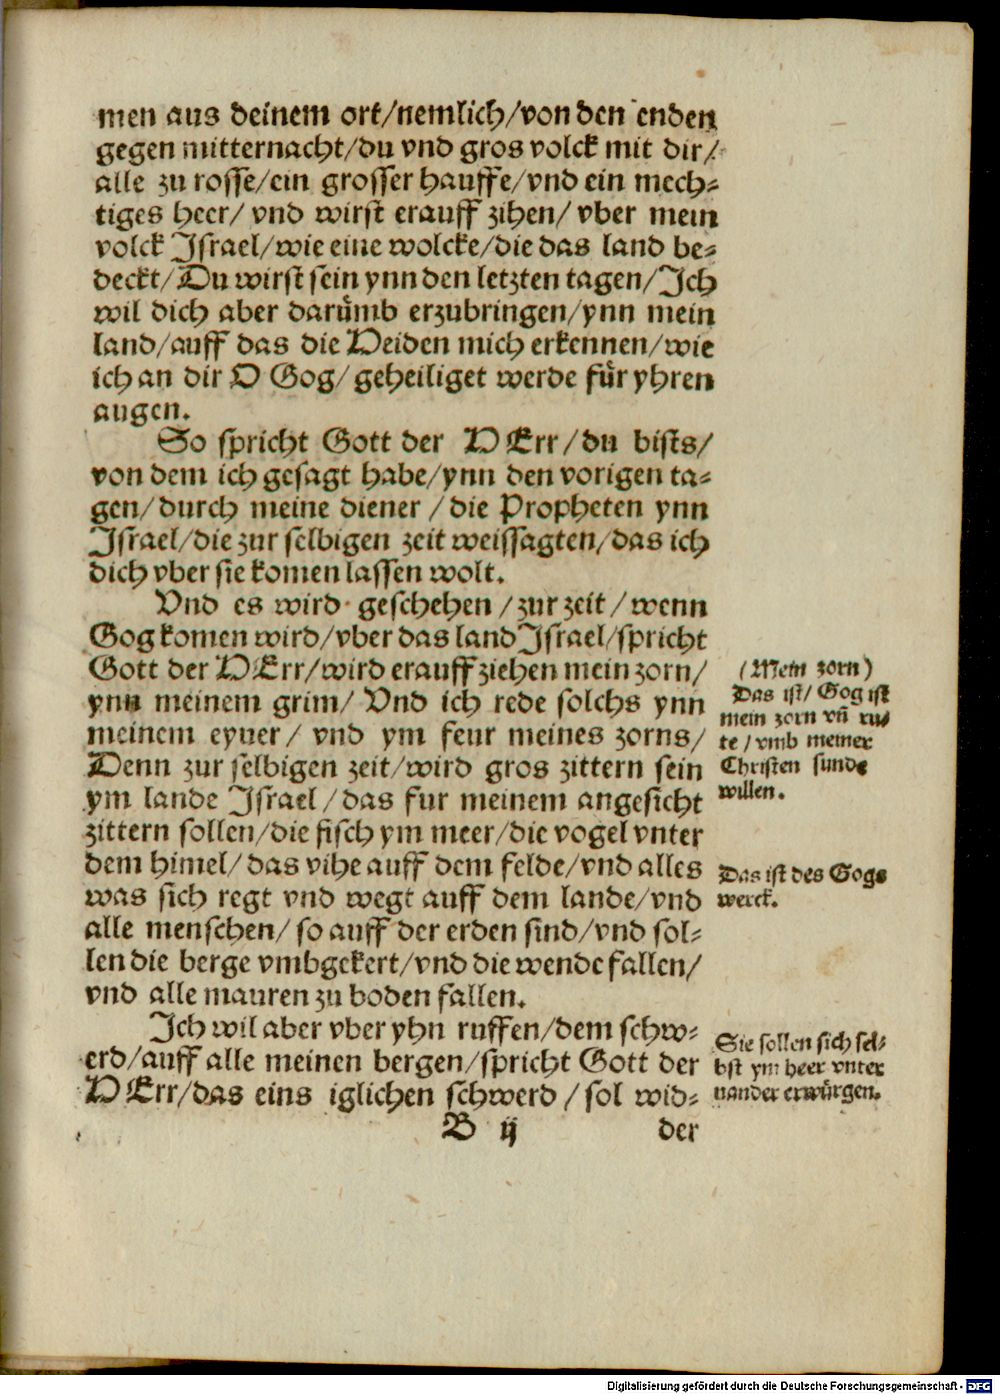 men aus deinem ort/nemlich/von den enden
gegen mitternacht/du vnd gros volck mit dir/
alle zu rosse/ein grosser hauffe/vnd ein mech-
tiges heer/ vnd wirst erauff zihen/ vber mein
volck Israel/wie eine wolcke/die das land be-
deckt/Du wirst sein ynn den letzten tagen/Ich
wil dich aber darůmb erzubringen/ynn mein
land/auff das die Heiden mich erkennen/wie
ich an dir O Gog/geheiliget werde fůr yhren
augen.
So spricht Gott der HErr/du bists/
von dem ich gesagt habe/ynn den vorigen ta-
gen/durch meine diener /die Propheten ynn
Israel/die zur selbigen zeit weissagten/das ich
dich vber sie komen lassen wolt.
Vnd es wird geschehen /zur zeit/wenn
Gog komen wird/vber das land Israel/spricht
Gott der HErr/wird erauff ziehen mein zorn/
ynn meinem grim/ Vnd ich rede solchs ynn
meinem eyuer/ vnd ym feur meines zorns/
Denn zur selbigen zeit/wird gros zittern sein
ym lande Israel/das fur meinem angesicht
zittern sollen/die fisch ym meer/die vogel vnter
dem himel/das vihe auff dem felde/vnd alles
was sich regt vnd wegt auff dem lande/vnd
alle menschen/so auff der erden sind/vnd sol-
len die berge vmbgekert/vnd die wende fallen/
vnd alle mauren zu boden fallen.
Ich wil aber vber yhn ruffen/dem schw-
erd/auff alle meinen bergen/spricht Gott der
HErr/das eins iglichen schwerd /sol wid-
B ij der
(Mein zorn)
Das ist/Gog ist
mein zorn vn̄ ru-
te/vmb meiner
Christen sunde
willen.
Das ist des Gogs
werck.
Sie sollen sich sel-
bst ym heer vnter
nander erwůrgen.
Digitalisierung gefördert durch die Deutsche Forschungsgemeinschaft - DFG